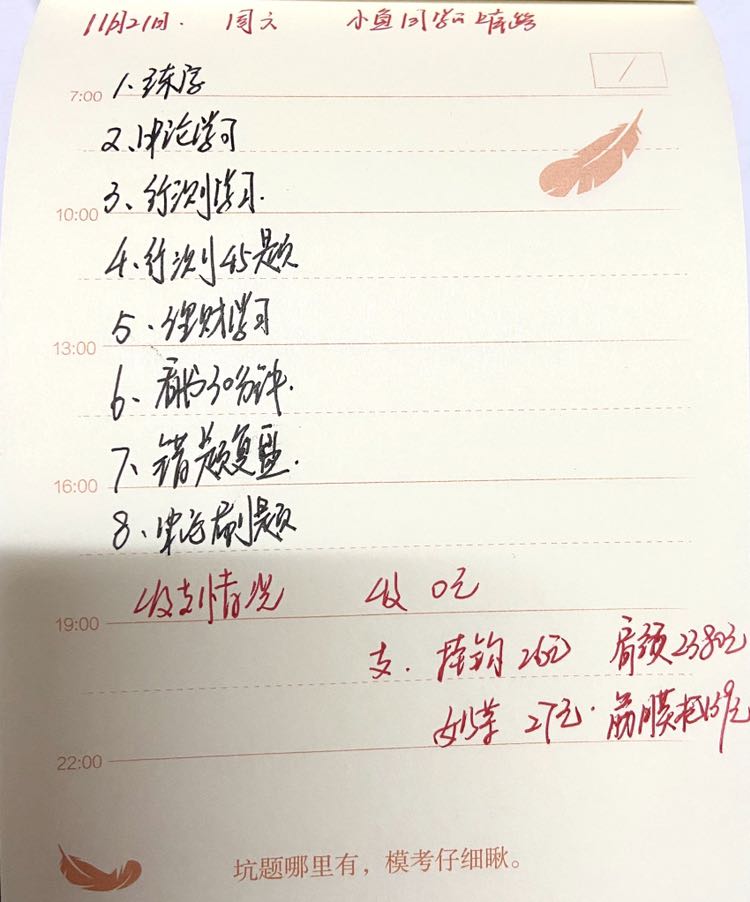 11月21日. 周六 小鱼同学 上岸路
7:00 1、练字
2、申论学习
3、行测学习.
10:00
4、行测45题
5、理财学习
13:00
6、看书30分钟.
7、错题复盘.
16:00
8、申论刷题
收支情况 收 0元
19:00
支. 挂钩 26元 肩颈2380元
奶茶 27元. 筋膜枪159元
22:00
坑题哪里有，模考仔细瞅。